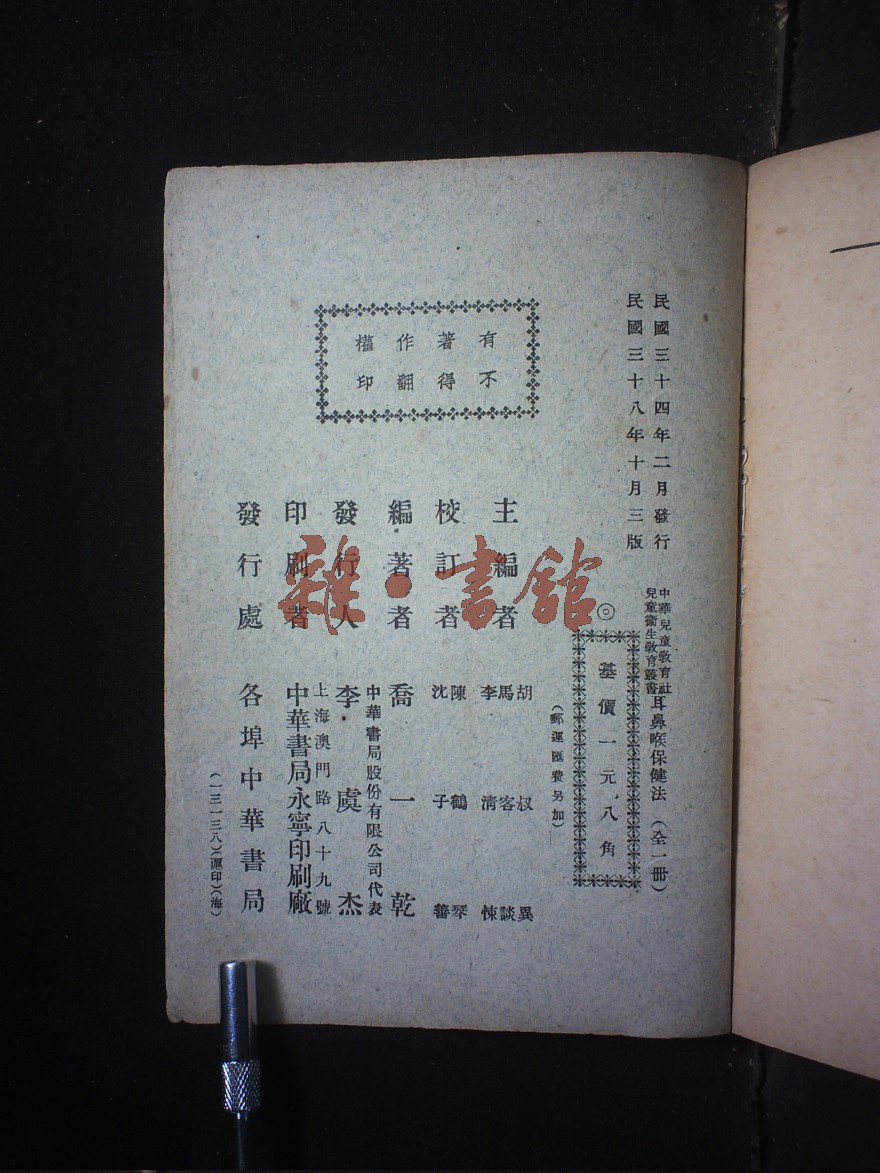 民國三十四年二月發行
民國三十八年十月三版
有著作權
不得翻印
中華兒童教育社
兒童衞生教育叢書
耳鼻喉保健法（全一册）
◎
基價一元八角
（郵運匯費另加）
主編者
胡叔異
馬客談
李清悚
校訂者
陳鶴琴
沈子善
編著者 喬一乾
發行人
中華書局股份有限公司代表
李虞杰
印刷者
上海澳門路八十九號
中華書局永寧印刷廠
發行處 各埠中華書局
（一三一三八）（滬印）（海）
雜·書館